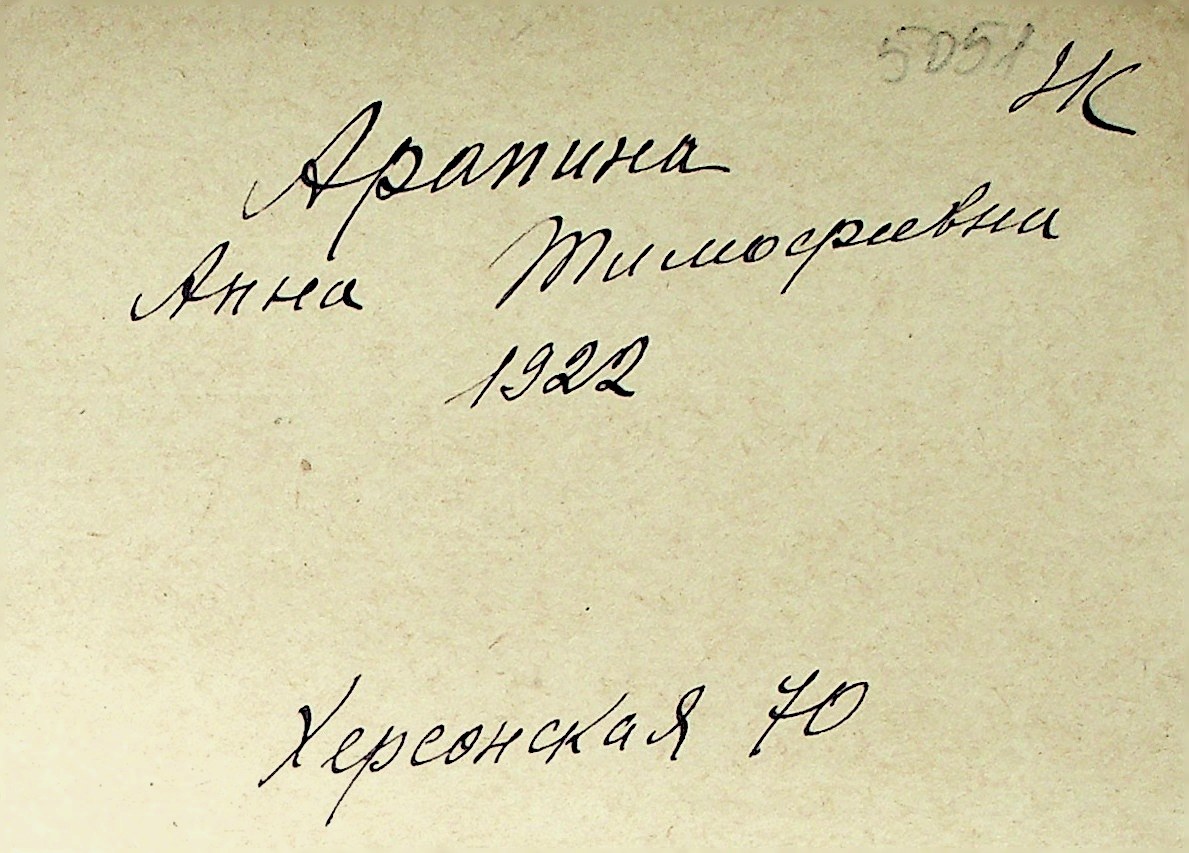 5051 НК
Арапина
Анна Тимофеевна
1922
Херсонская 70